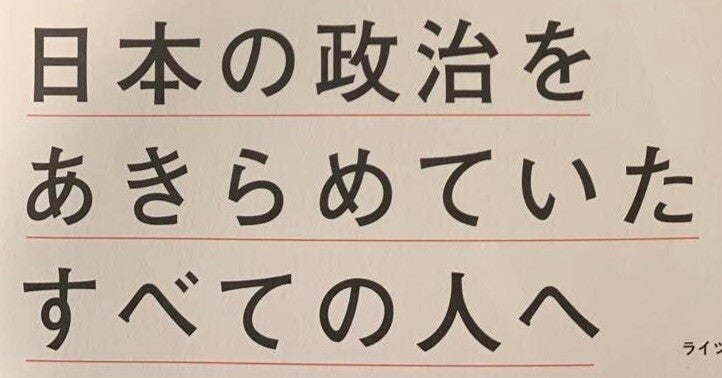 日本の政治を
あきらめていた
すべての人へ
ライツ